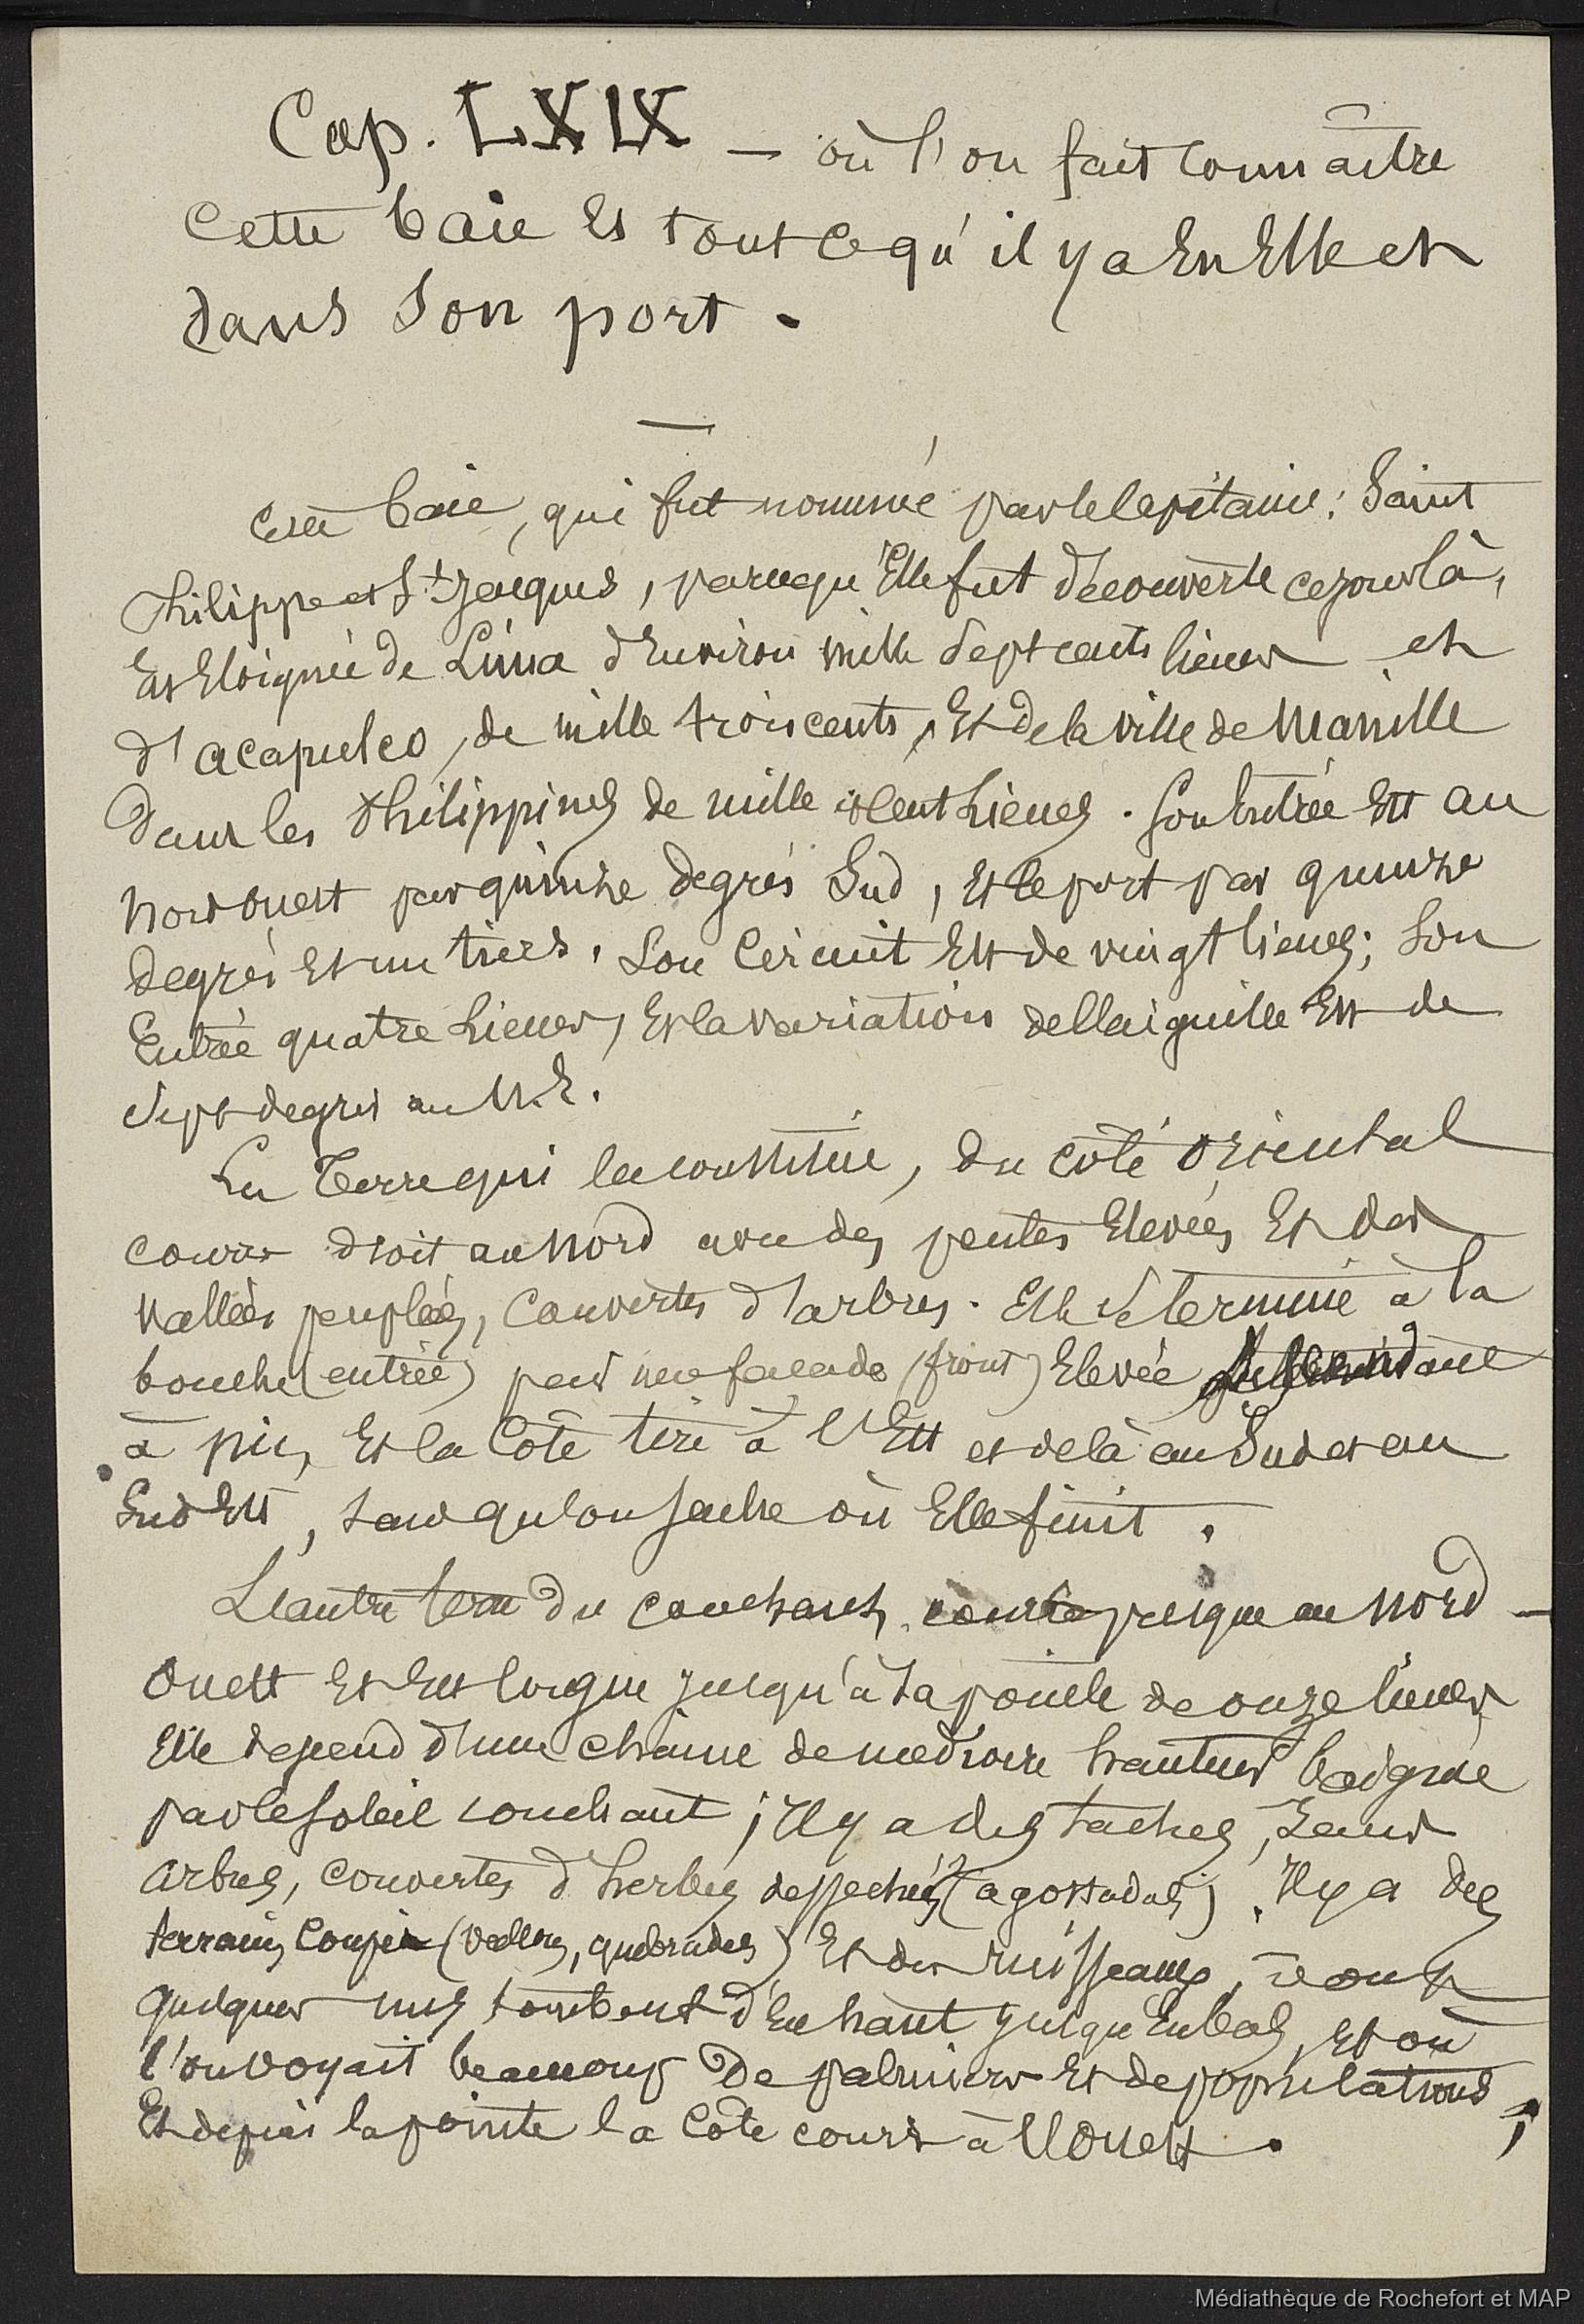 Cap. LXIX — où l'on fait connaître
cette baie et tout ce qu'il y a en Elle et
dans son port.
Cette baie, qui fut nommée par le Capitaine: Saint
Philippe et St Jacques, parce qu'Elle fut découverte ce jour là,
Est Eloignée de Lima d'Environ mille sept cents lieues et
d'acapulco, de mille trois cents, Et de la ville de Manille
dans les Philippines de mille cent Lieues. Son Entrée Est au
Nord Ouest par quinze degrés Sud, Et le port par quinze
degrés Et un tiers. Son Circuit Est de vingt lieues; Son
Entrée quatre Lieues, Et la variation de l'aiguille Est de
sept degrés au N.E.
La Terre qui la constitue, du côté Oriental
court droit au Nord avec des pentes Elevées Et des
Vallées peuplées, Couvertes d'arbres. Elle se termine à la
bouche (entrée) par une façade (front) Elevée
à pic, Et la Côte tire à l'Est et de là au Sud et au
Sud Est, sans qu'on sache où Elle finit.
L'autre terre du couchant, court presque au Nord —
Ouest Et Est longue jusqu'à sa pointe de onze lieues
Elle dépend d'une chaîne de médiocre hauteur baignée
par le Soleil couchant; Il y a des taches, Sans
Arbres, Couvertes d'herbes desséchées (agostadas). Il y a des
terrains Coupés (Vallons, quebradas) Et des ruisseaux, dont
quelques uns tombent d'En haut jusqu'En bas, Et où
l'on voyait beaucoup De palmiers Et de populations;
Et depuis la pointe la Côte court à l'Ouest.
Médiathèque de Rochefort et MAP